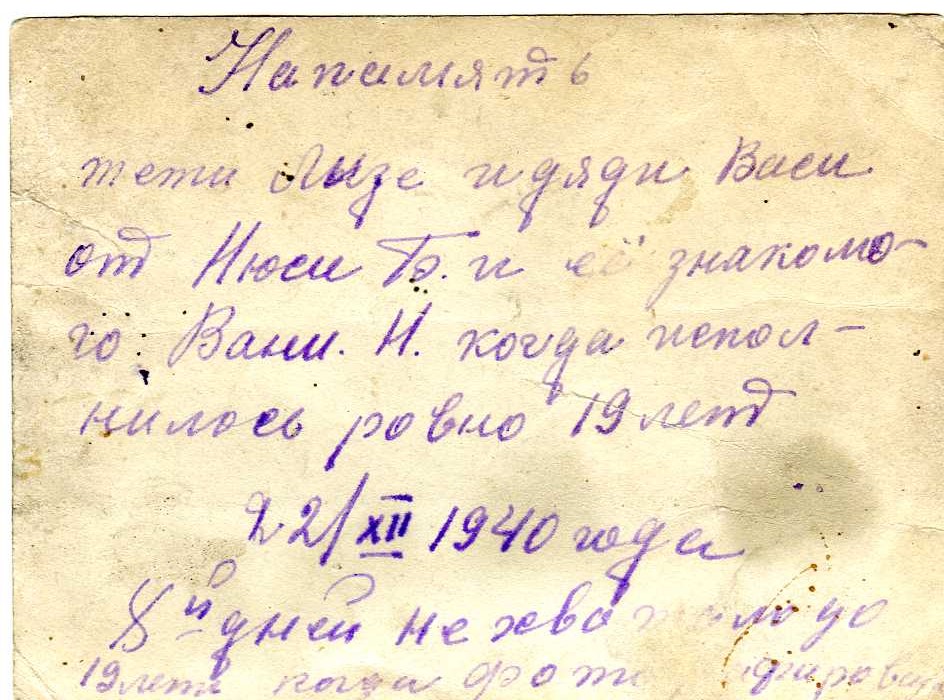 Напамять
тети Лизе и дяди Васи
от Нюси Б. и её знакомо-
го Вани. Н. когда испол-
нилось ровно 19 лет
22/XII 1940 года
8й дней не хватало до
19 лет когда